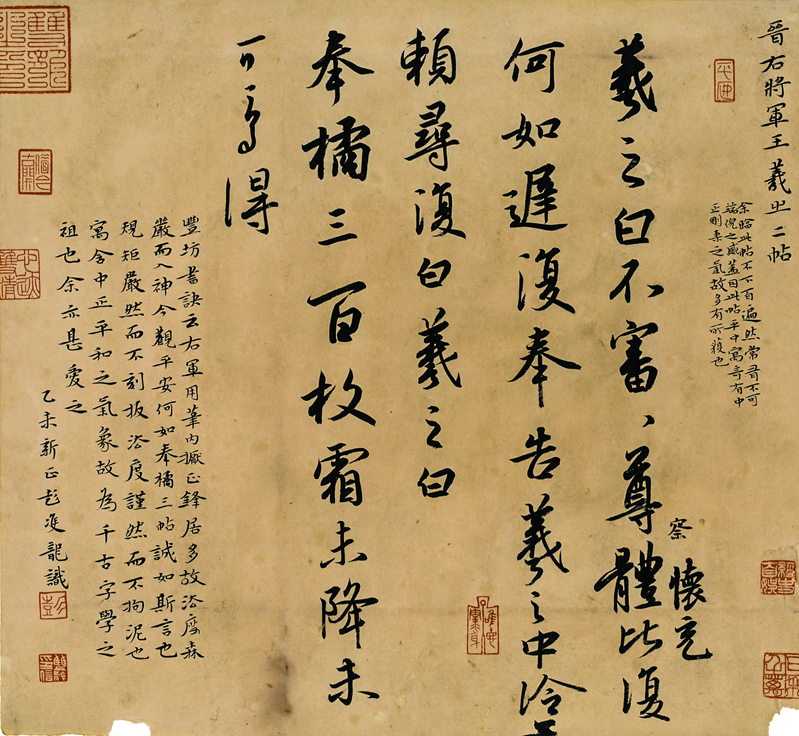 晉右將軍王羲之二帖
余臨此帖不下百遍然常有不可
端倪之感蓋因此帖平中寓奇有中
正剛柔之氣故多有所獲也
察
懷充
羲之白不審、尊體比復
何如遲復奉告羲之中冷無
賴尋復白羲之白
奉橘三百枚霜未降未
可多得
豐坊書訣云右軍用筆內擫正鋒居多故法度森
嚴而入神今觀平安何如奉橘三帖誠如斯言也
規矩嚴然而不刻板法度謹然而不拘泥也
寓含中正平和之氣象故為千古字學之
祖也余亦甚愛之
乙未新正彭双龍識